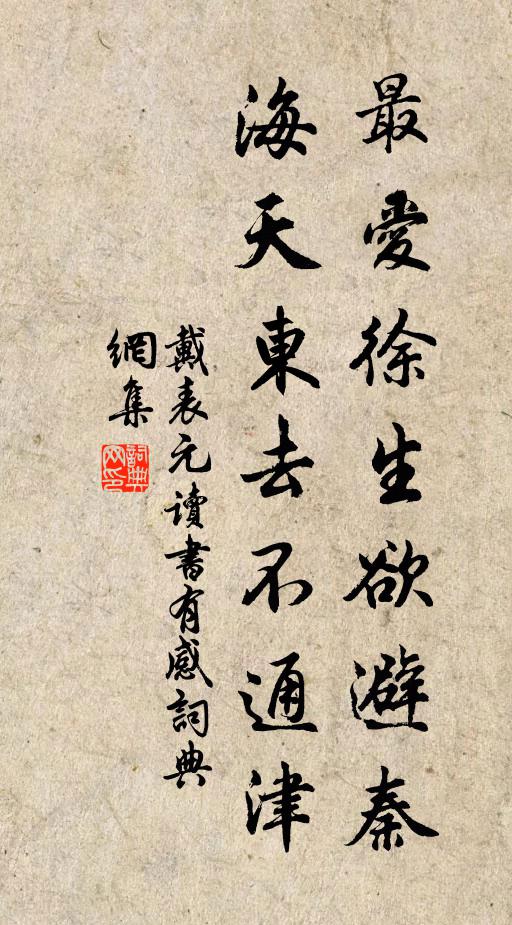 最愛徐生欲避秦
海天東去不通津
戴表元讀書有感詞典
網集
詞典
网印